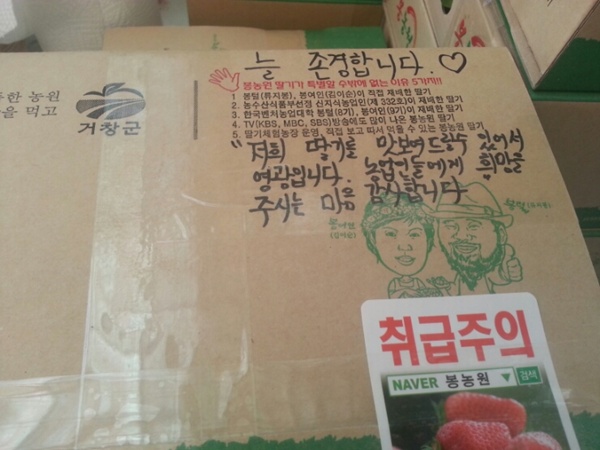 늘 존경합니다. ♡
봉농원 딸기가 특별할 수밖에 없는 이유 5가지!!
1. 봉털(류지봉), 봉여인(김이순)이 직접 재배한 딸기
2. 농수산식품부선정 신지식농업인(제 332호)이 재배한 딸기
3. 한국벤처농업대학 봉털(8기), 봉여인(9기)이 재배한 딸기
4. TV(KBS, MBC, SBS)방송에도 많이 나온 봉농원 딸기
5. 딸기체험농장 운영, 직접 보고 따서 먹을 수 있는 봉농원 딸기
"저희 딸기를 맛보여드릴수 있어서
영광입니다. 농업인들에게 희망을
주시는 마음 감사합니다
한 농원
을 먹고
거창군
봉여인
(김이순)
봉털(류지봉)
취급주의
NAVER 봉농원 검색